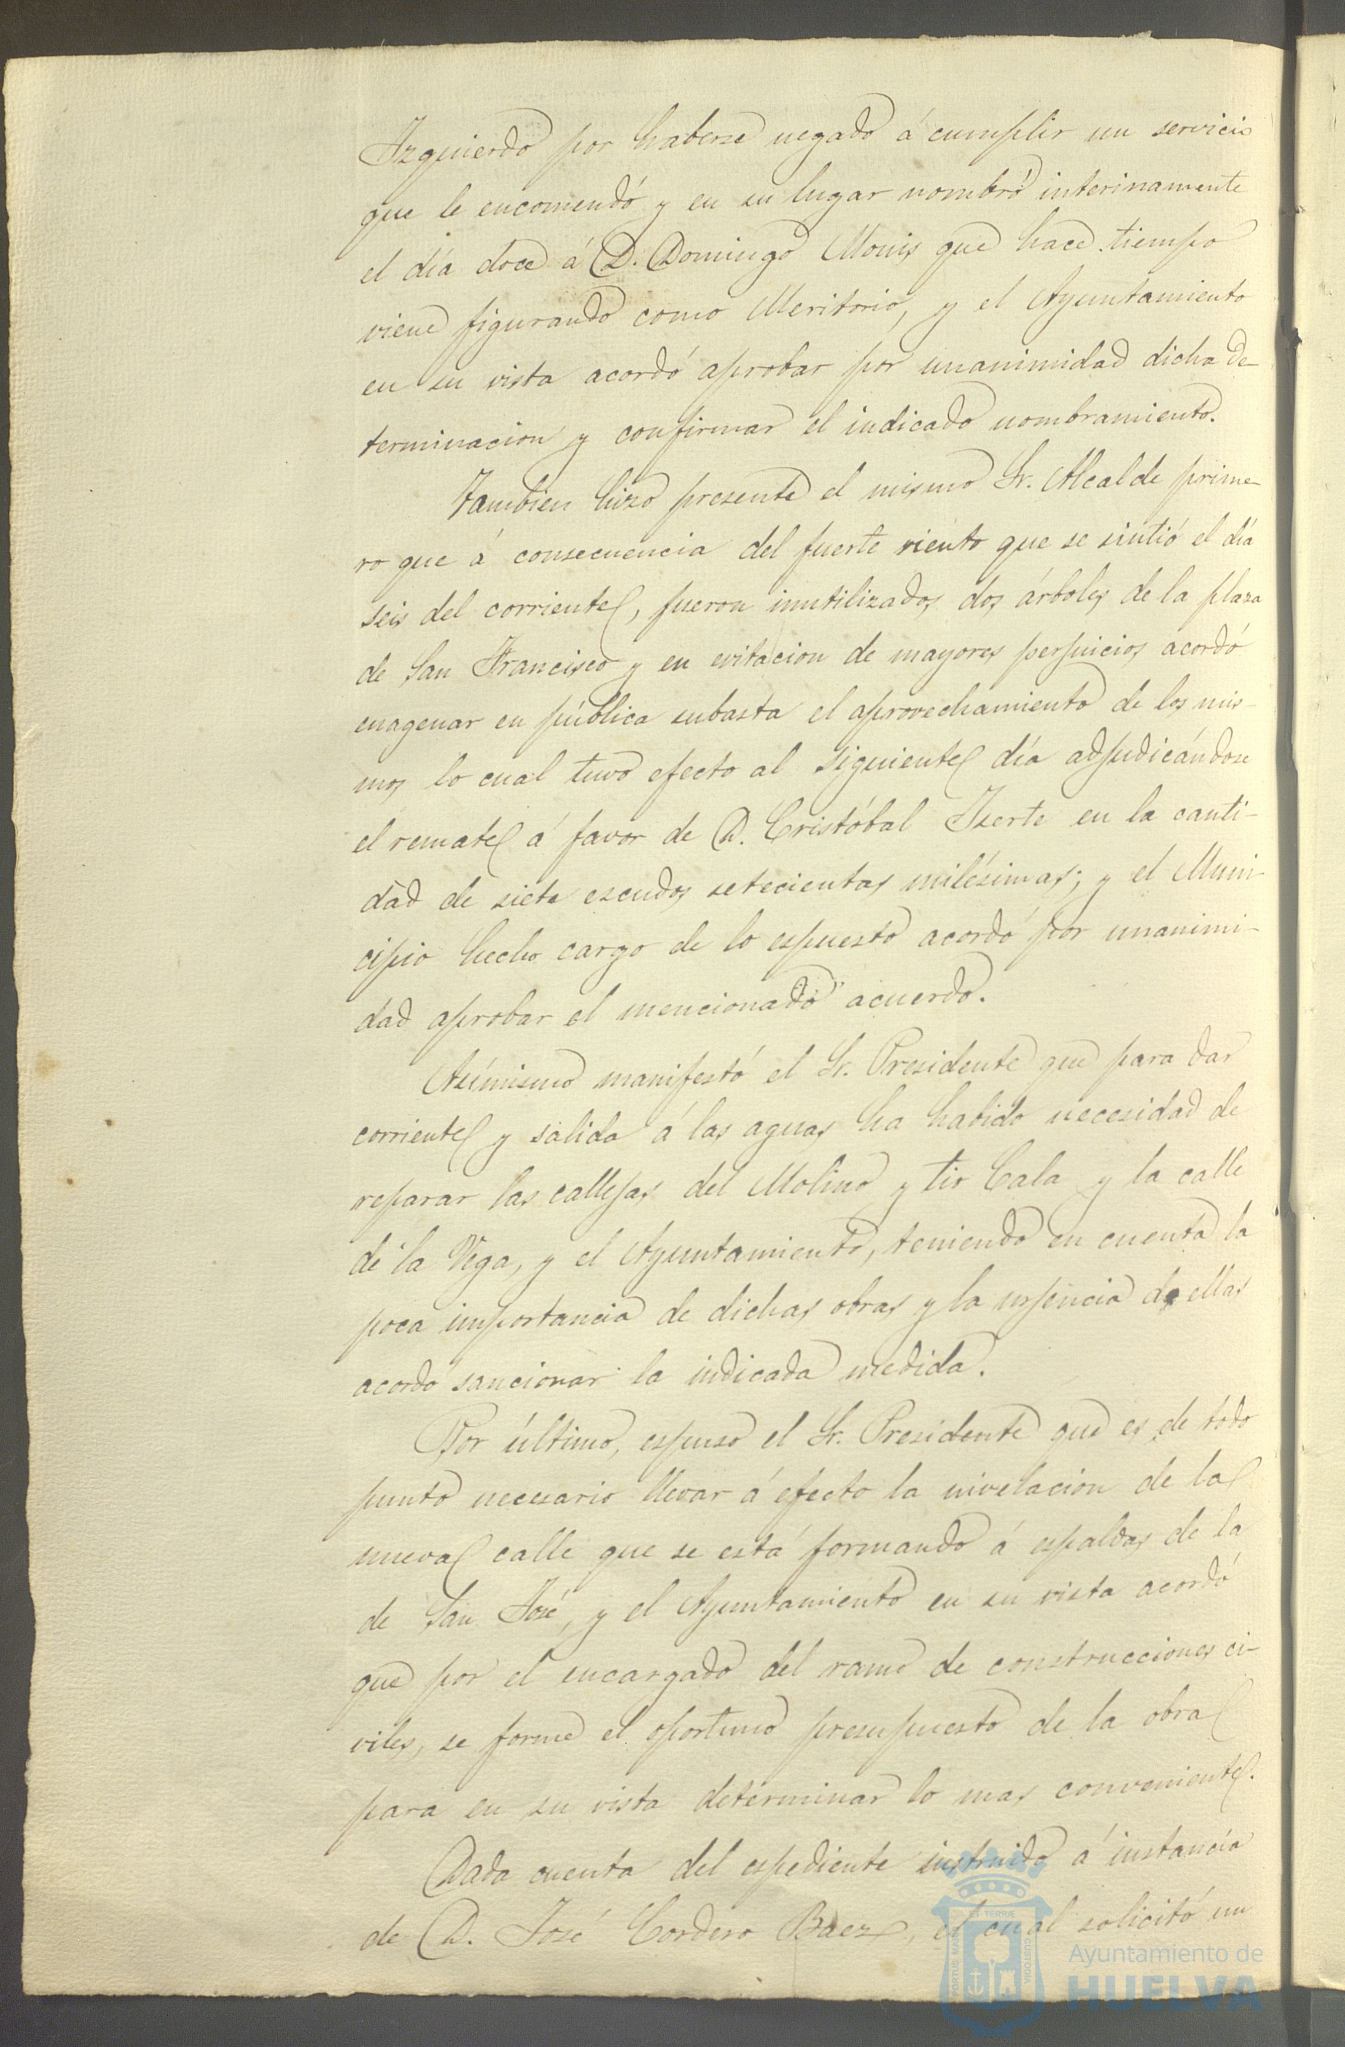 Izquierdo por haberse negado á cumplir un servicio
que le encomendó y en su lugar nombró interinamente
el día doce á D. Domingo Monis que hace tiempo
viene figurando como Meritorio, y el Ayuntamiento
en su vista acordó aprobar por unanimidad dicha de-
terminacion y confirmar el indicado nombramiento.
Tambien hizo presente el mismo Sr. Alcalde prime-
ro que á consecuencia del fuerte viento que se sintió el día
seis del corriente, fueron inutilizados dos árboles de la plaza
de San Francisco y en evitacion de mayores perjuicios acordó
enagenar en pública subasta el aprovechamiento de los mis-
mos lo cual tuvo efecto al siguiente día adjudicándose
el remate á favor de D. Cristóbal Iserte en la canti-
dad de siete escudos setecientas milésimas; y el Muni-
cipio hecho cargo de lo espuesto acordó por unanimi-
dad aprobar el mencionado acuerdo.
Asímismo manifestó el Sr. Presidente que para dar
corriente y salida á las aguas ha habido necesidad de
reparar las callejas del Molino y tir Cala y la calle
de la Vega, y el Ayuntamiento, teniendo en cuenta la
poca importancia de dichas obras y la urjencia de ellas
acordó sancionar la indicada medida.
Por último, espuso el Sr. Presidente que es de todo
punto necesario llevar á efecto la nivelacion de la
nueva calle que se está formando á espaldas de la
de San José, y el Ayuntamiento en su vista acordó
que por el encargado del ramo de construcciones ci-
viles, se forme el oportuno presupuesto de la obra
para en su vista determinar lo mas conveniente.
Dada cuenta del espediente instruido á instancia
de D. José Cordero Baez, el cual solicitó un
Ayuntamiento de
HUELVA